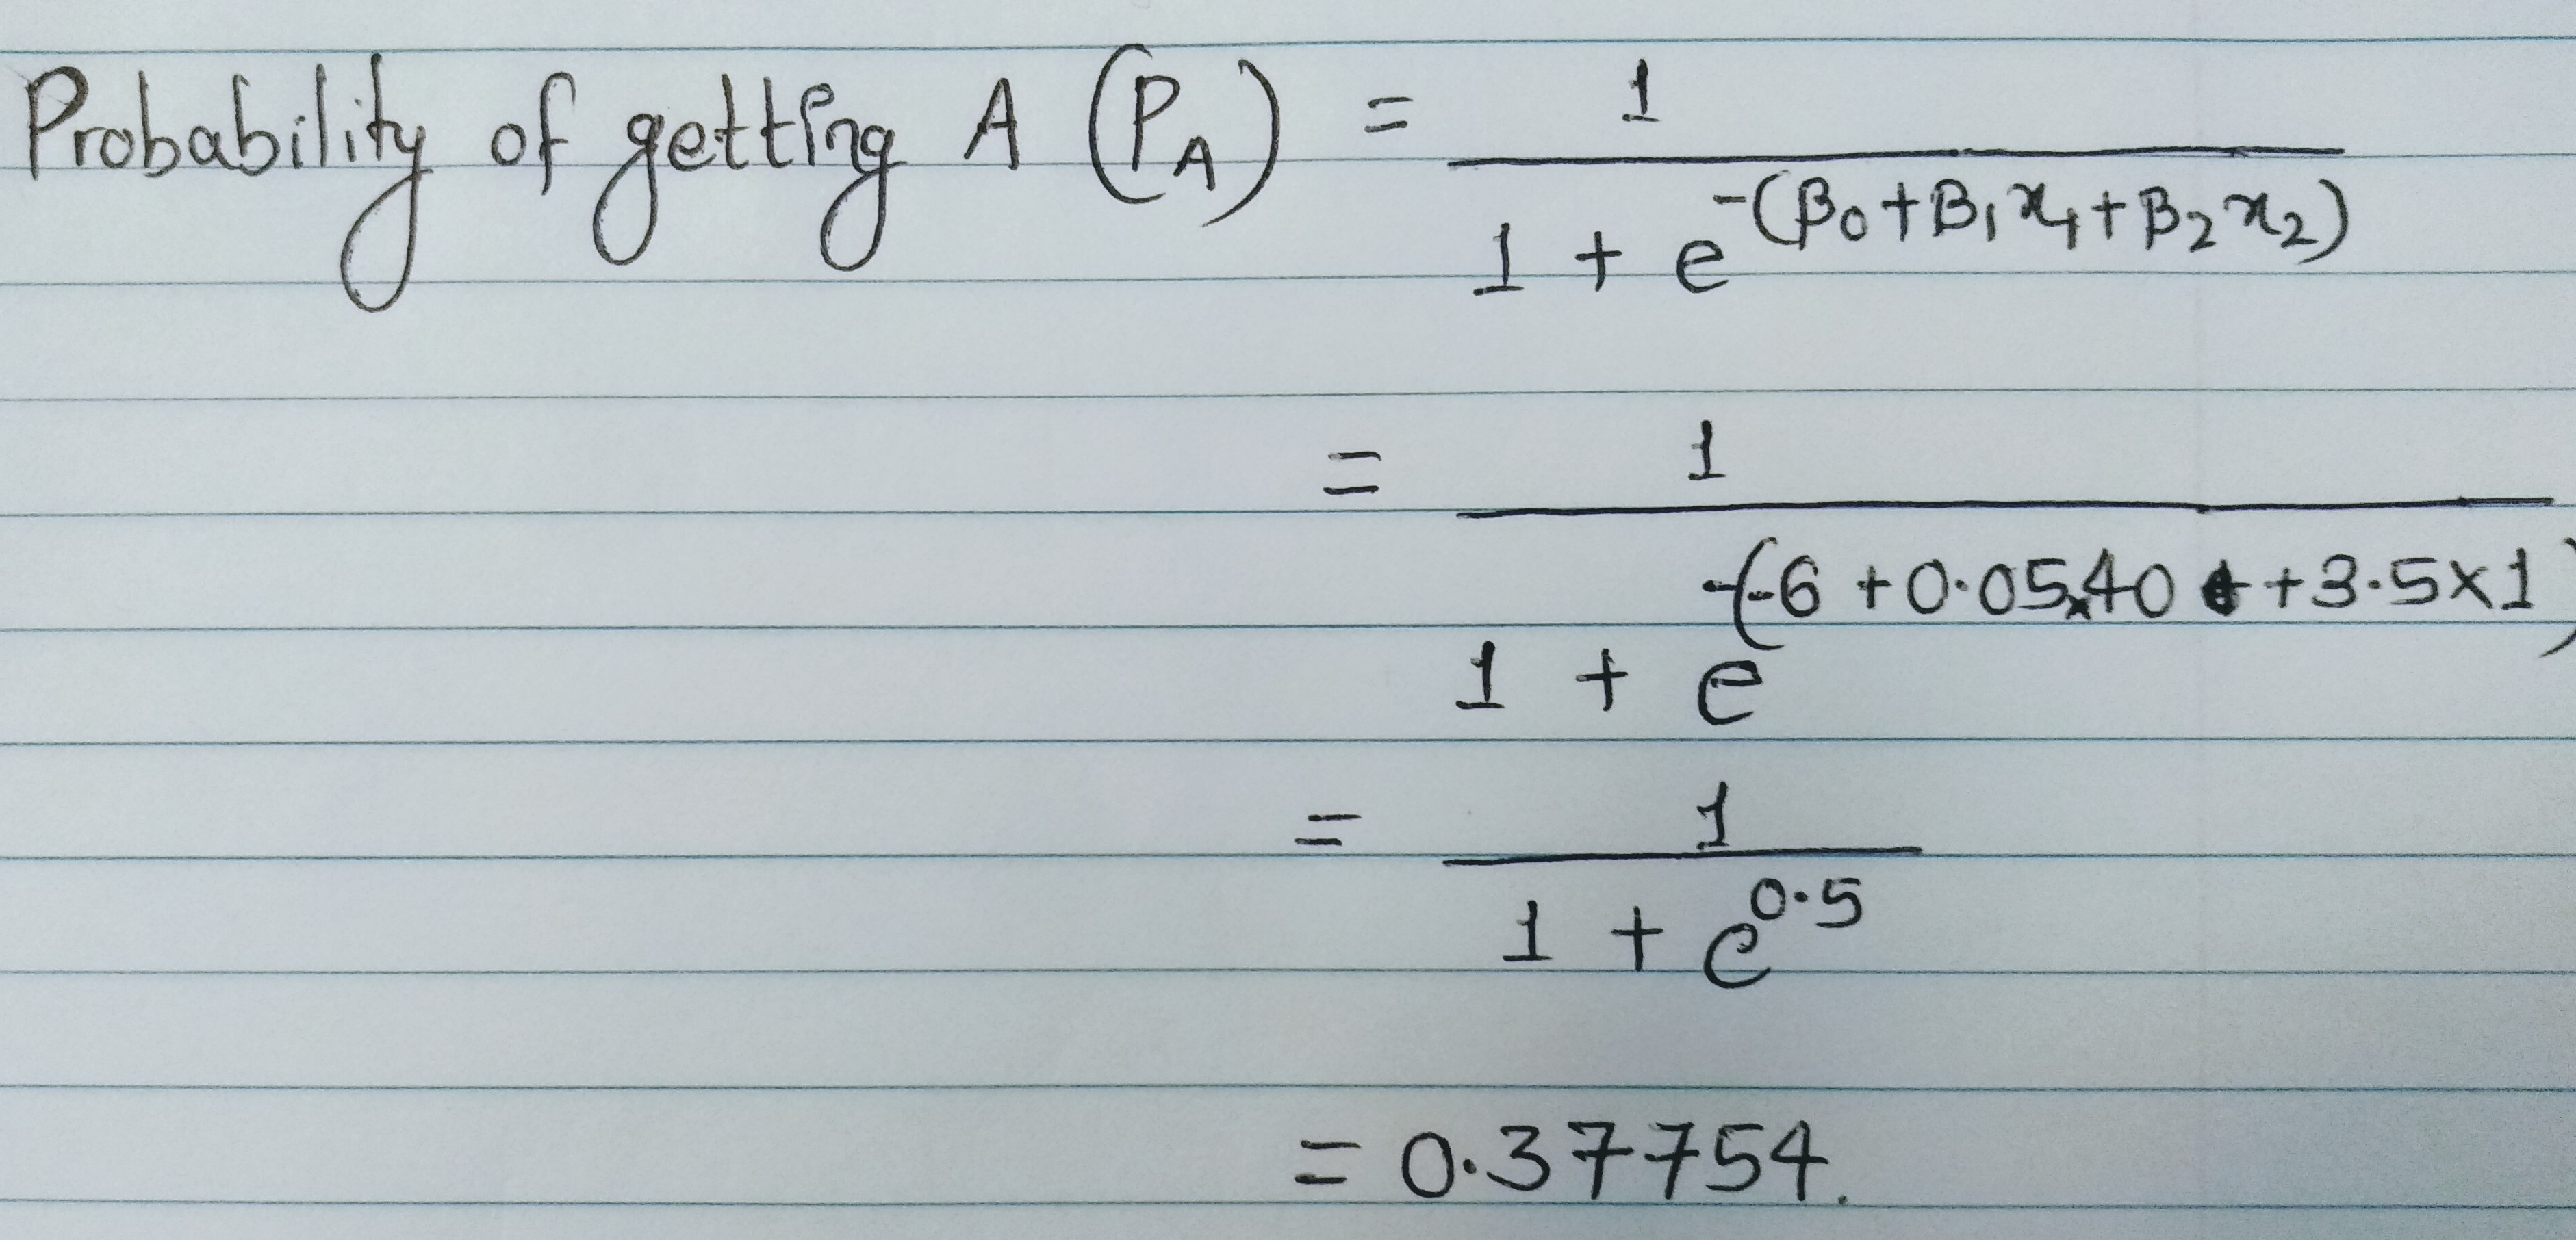 Probability of getting A (P_A) = 1 / (1 + e^-(β0+β1x1+β2x2))
= 1 / (1 + e^-(-6 + 0.05×40 + +3.5×1))
= 1 / (1 + e^0.5)
= 0.37754.